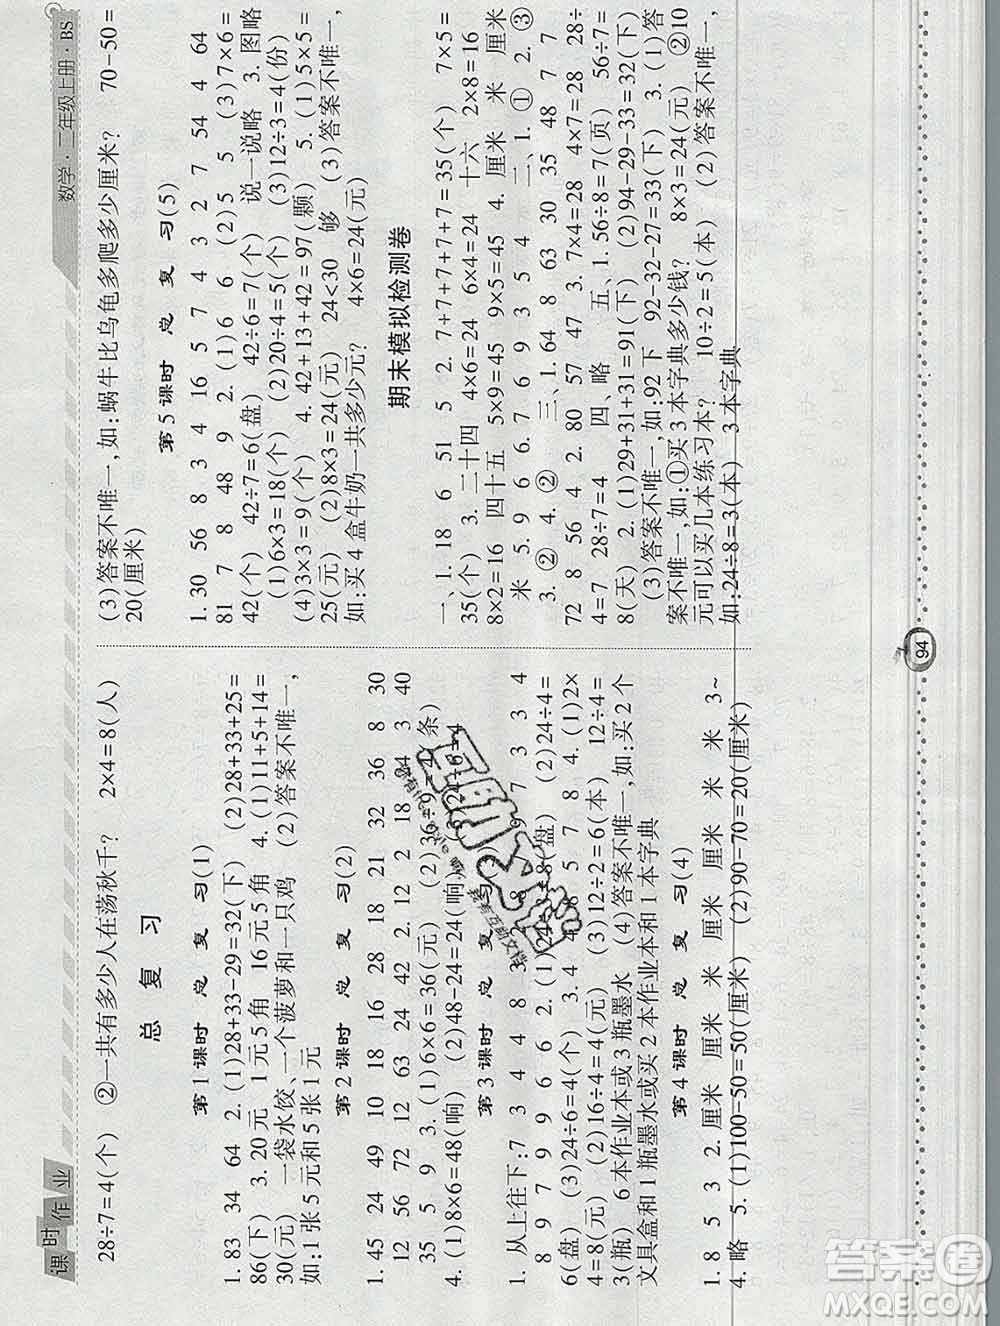 课时作业
数学·二年级上册·BS
28÷7=4(个) ②一共有多少人在荡秋千? 2×4=8(人)
总 复 习
第1课时 总 复 习(1)
1. 83 34 64 2. (1)28+33-29=32(下) (2)28+33+25=
86(下) 3. 20元 1元5角 16元5角 4. (1)11+5+14=
30(元) 一袋水饺、一个菠萝和一只鸡 (2)答案不唯一,
如:1张5元和5张1元
第2课时 总 复 习(2)
1. 45 24 49 10 18 16 28 18 21 32 36 8 30
12 56 72 12 63 24 42 2. 12 2 18 24 3 40
35 5 9 3. (1)6×6=36(元) (2)36÷9=4(条)
4. (1)8×6=48(响) (2)48-24=24(响) 24÷6=4
第3课时 总 复 习
1. 从上往下:7 3 4 4 8 3 9 7 3 3 4
8 9 7 9 9 6 6 2. (1)24 8(盘) (2)24÷4=
6(盘) (3)24÷6=4(个) 3. 4 8 5 7 8 4. (1)2×
4=8(元) (2)16÷4=4(元) (3)12÷2=6(本) 12÷4=
3(瓶) 6本作业本或3瓶墨水 (4)答案不唯一,如:买2个
文具盒和1瓶墨水或买2本作业本和1本字典
第4课时 总 复 习(4)
1. 8 5 3 2. 厘米 厘米 米 厘米 厘米 米 米 3~
4. 略 5. (1)100-50=50(厘米) (2)90-70=20(厘米)
(3)答案不唯一,如:蜗牛比乌龟多爬多少厘米? 70-50=
20(厘米)
第5课时 总 复 习(5)
1. 30 56 8 3 4 16 5 7 4 3 2 7 54 4 64
81 7 8 48 9 2. (1)6 6 (2)5 5 (3)7×6=
42(个) 42÷7=6(盘) 42÷6=7(个) 说一说略 3. 图略
(1)6×3=18(个) (2)20÷4=5(个) (3)12÷3=4(份)
(4)3×3=9(个) 4. 42+13+42=97(颗) 5. (1)5×5=
25(元) (2)8×3=24(元) 24<30 够 (3)答案不唯一,
如:买4盒牛奶一共多少元? 4×6=24(元)
期末模拟检测卷
一、1. 18 6 51 5 2. 7+7+7+7+7=35(个) 7×5=
35(个) 3. 二十四 4×6=24 6×4=24 十六 2×8=16
8×2=16 四十五 5×9=45 9×5=45 4. 厘米 米 厘米
米 5. 9 6 6. 7 6 9 3 5 4 二、1. ① 2. ③
3. ② 4. ② 三、1. 64 8 63 30 35 48 7 7
72 8 56 4 2. 80 57 47 3. 7×4=28 4×7=28 28÷
4=7 28÷7=4 四、略 五、1. 56÷8=7(页) 56÷7=
8(天) 2. (1)29+31+31=91(下) (2)94-29-33=32(下)
(3)答案不唯一,如,92下 92-32-27=33(下) 3. (1)答
案不唯一,如:①买3本字典多少钱? 8×3=24(元) ②10
元可以买几本练习本? 10÷2=5(本) (2)答案不唯一,
如:24÷8=3(本) 3本字典
94
答案圈
MXQE.COM